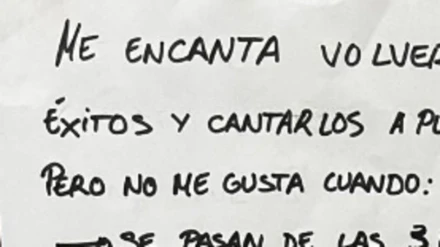 ME ENCANTA VOLVER
ÉXITOS Y CANTARLOS A PU
PERO NO ME GUSTA CUANDO:
→ SE PASAN DE LAS 3